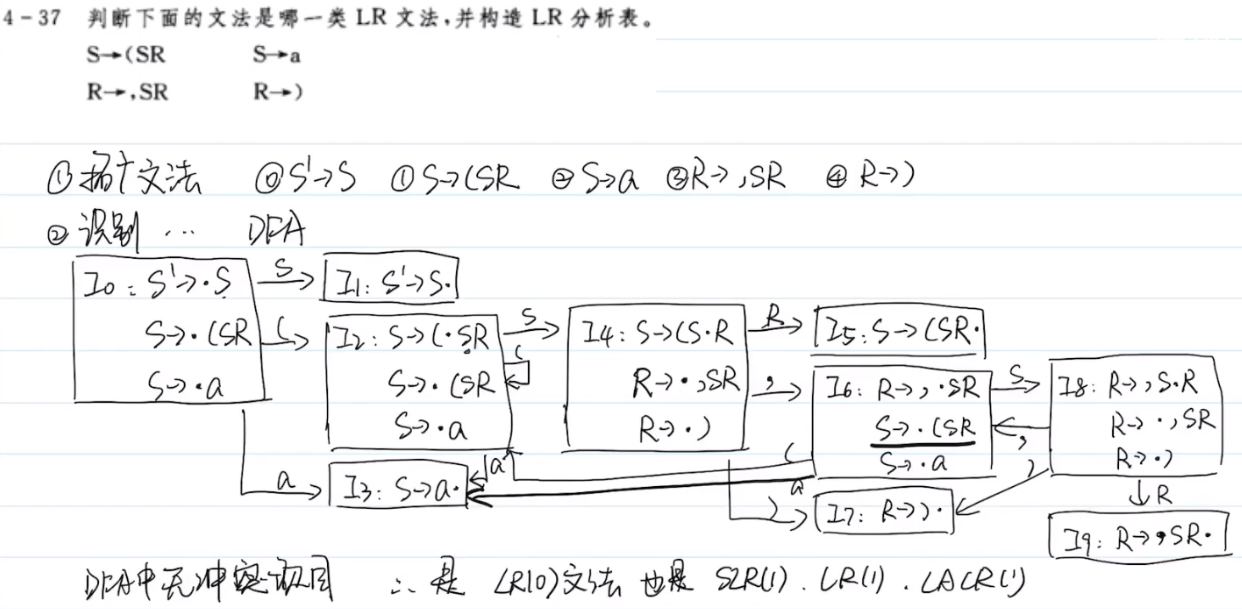 4-37 判断下面的文法是哪一类 LR 文法,并构造 LR 分析表。
S→(SR S→a
R→,SR R→)
①拓广文法 ⓪S'→S ①S→(SR ②S→a ③R→,SR ④R→)
②识别… DFA
I0: S'→·S
S→·(SR
S→·a
S
(
a
I1: S'→S·
I2: S→(·SR
S→·(SR
S→·a
S
(
a
I3: S→a·
I4: S→(S·R
R→·,SR
R→·)
R
,
)
I5: S→(SR·
I6: R→,·SR
S→·(SR
S→·a
S
(
a
I7: R→)·
I8: R→,S·R
R→·,SR
R→·)
,
)
R
I9: R→,SR·
DFA中无冲突项目 ∴是 LR(0)文法 也是 SLR(1).LR(1).LALR(1)